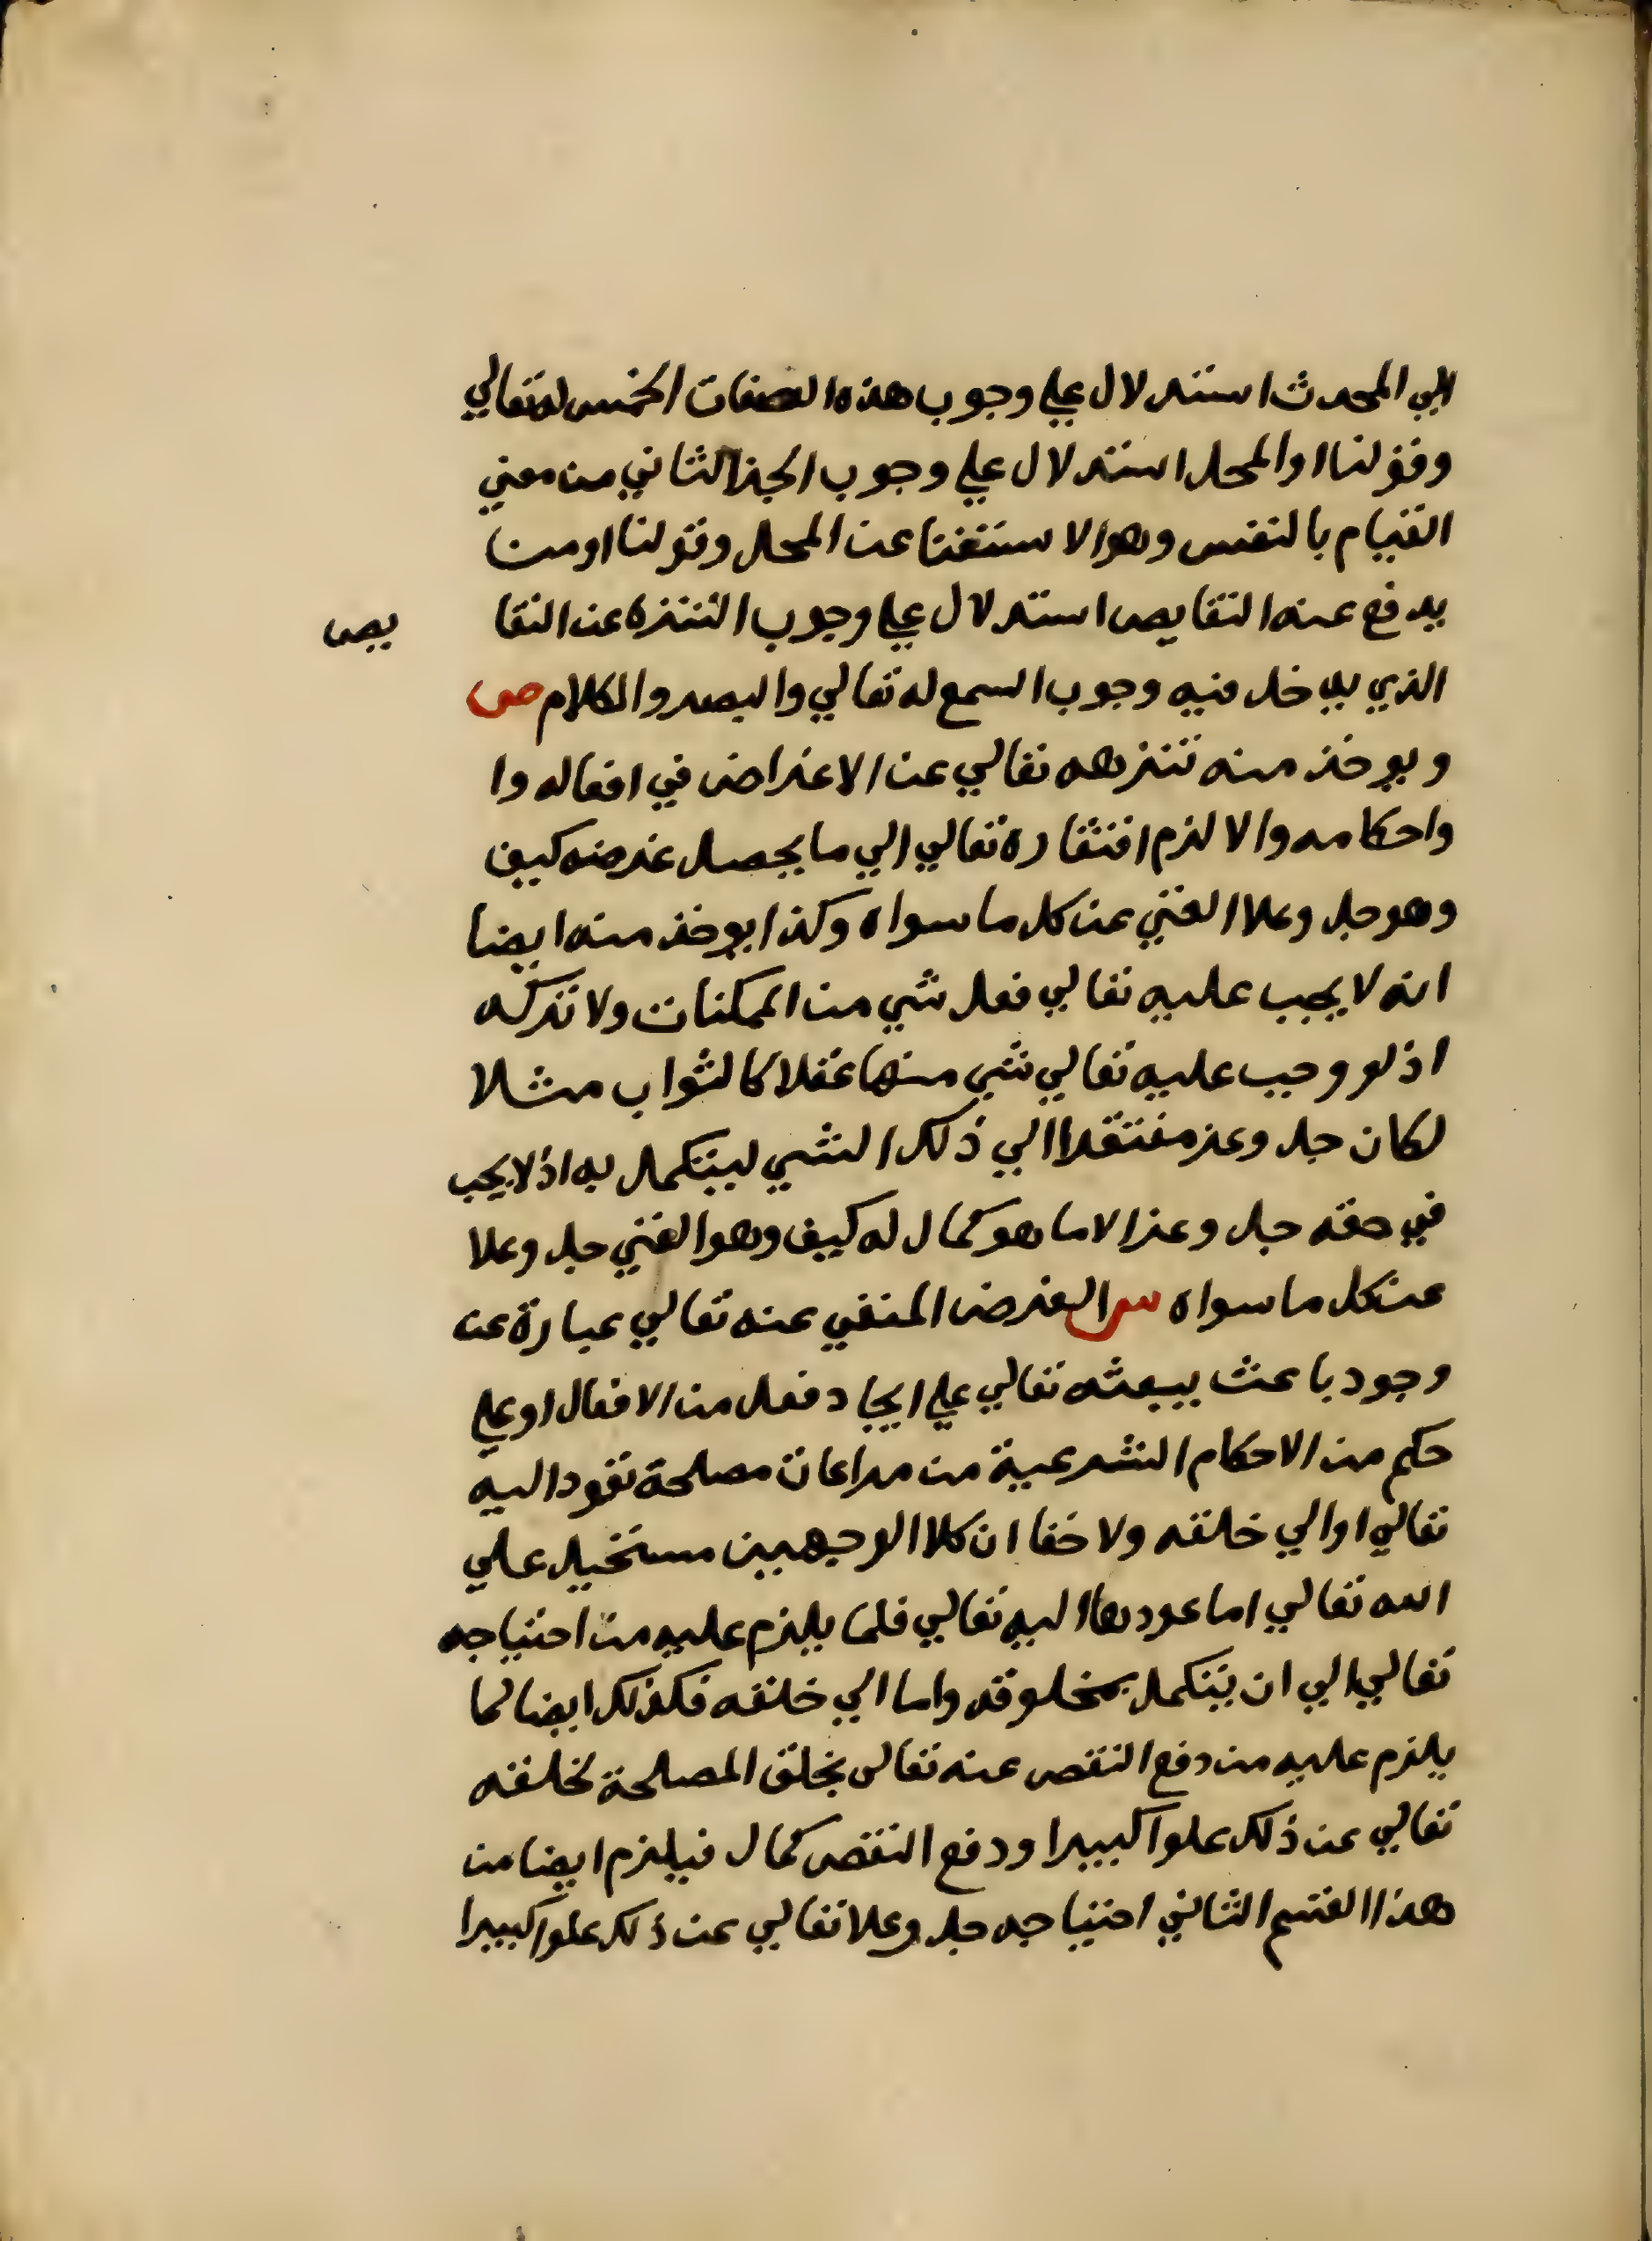 الي المحدث استدلال علي وجوب هذه الصفات الخمس له تعالي
وقولنا او المحل استدلال علي وجوب الجزا الثاني من معني
القيام بالنفس وهو الاستغنا عن المحل وقولنا او من
يدفع عنه النقايص استدلال علي وجوب التنزه عن النقا يص
الذي يدخل فيه وجوب السمع له تعالي والبصر والكلام ص
ويوخذ منه تنزهه تعالي عن الاغراض في افعاله وا
واحكامه والا لزم افتقاره تعالي الي ما يحصل غرضه كيف
وهو جل وعلا الغني عن كل ما سواه وكذا يوخذ منه ايضا
انه لا يجب عليه تعالي فعل شي من الممكنات ولا تركه
اذ لو وجب عليه تعالي شي منها عقلا كالثواب مثلا
لكان جل وعز مفتقرا الي ذلك الشي ليتكمل به اذ لا يجب
في حقه جل وعز الا ما هو كمال له كيف وهو الغني جل وعلا
عن كل ما سواه س الغرض المنفي عنه تعالي عبارة عن
وجود باعث يبعثه تعالي علي ايجاد فعل من الافعال او علي
حكم من الاحكام الشرعية من مراعات مصلحة تعود اليه
تعالي او الي خلقه ولا خفا ان كلا الوجهين مستحيل علي
الله تعالي اما عودها اليه تعالي فلما يلزم عليه من احتياجه
تعالي الي ان يتكمل بمخلوقه واما الي خلقه فكذلك ايضا لما
يلزم عليه من دفع النقص عنه تعالي بخلق المصلحة لخلقه
تعالي عن ذلك علوا كبيرا ودفع النقص كمال فيلزم ايضا من
هذا القسم الثاني احتياجه جل وعلا تعالي عن ذلك علوا كبيرا